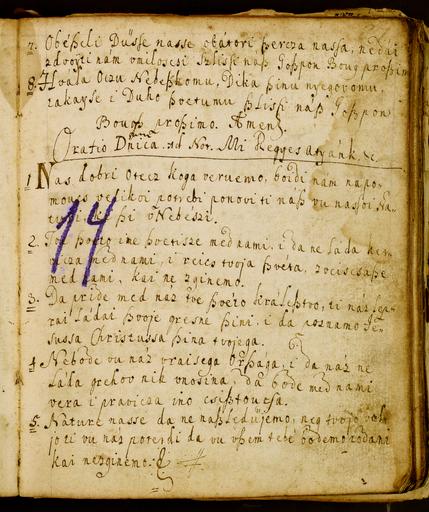 7. Obeseli Dusse nasse otávori sercza nassa, nedai
zdvojti nám vmilosesi Slissi nas Gospon Boug prosimo
8. Hvala Oczu Nebeskomu, Dika sinu nyegovomu,
takayse i Duho svetumu slissi nas Gospon
Boug prosimo. Amen
Oratio Dnica. ad Not. Mi Regges atyánk. &c.
1 Nas dobri Otecz koga veruemo, boidi nam napo-
moucs velikoi potrebi ponovi ti nas vu nassoi Na-
si vNebeszi.
14
2. svetisze med nami, i da ne lada
med nami, i reics tvoja svéta,
med nami, kai ne zginemo.
3. Da pride med naz tve sveto kralestvo, ti naz
rai ladai svoje gresne sini, i da poznamo Je-
sussa Christussa sina tvojega.
4. Nebode vu naz vraisega Orsaga, i da naz ne
láda grehov nik vnosina, da bode med nami
vera i pravicza ino csistoucsa.
5. Nature nasse da ne nasledujemo, neg tvojo vol-
jo ti vu naz poterdi da vu vsem tebe bodemo
kai nezginemo.